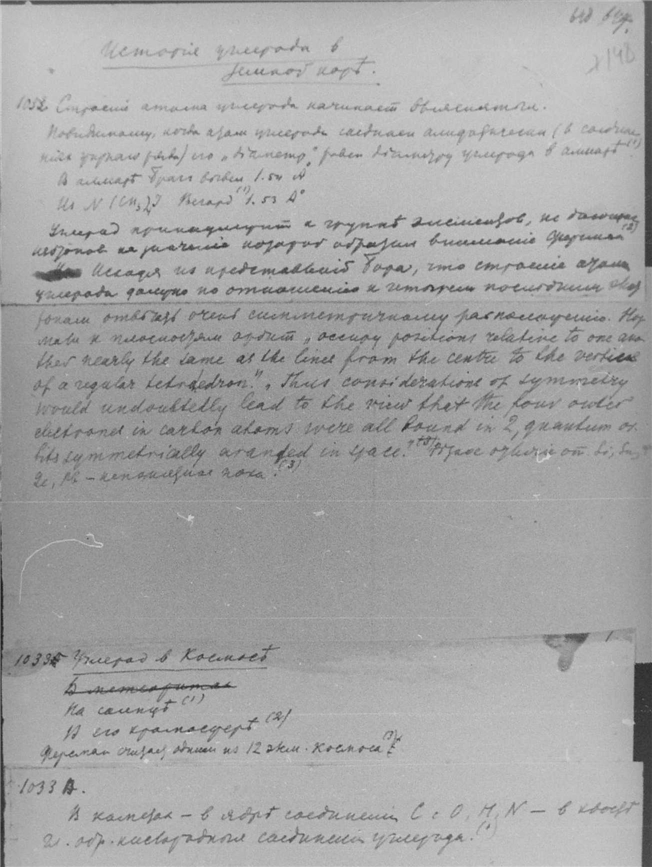 Исторія углерода в
земной корѣ.
1032 Строеніе атома углерода начинает выясняться.
Повидимому, когда атом углерода соединен алифатически (в соедине-
ніях ряда) его "діаметр" равен діаметру углерода в алмазѣ (1)
В алмазѣ Брагг 1.54 A°
Из N(CH3)4J Вегард (1) 1.53 A°
Углерод принадлежит к группѣ элементов, не дающих
на значеніе которой обратил вниманіе Ферсман (2)
Исходя из представленій Бора, что строеніе атома
углерода должно по отношенію к четырем послѣдним элек
тронам отвѣчать очень симметричному расположенію. Нор
мали к плоскостям орбит "occupy positions relative to one ano
ther nearly the same as the lines from the centre to the vertices
of a regular tetraedron". "Thus considerations of symmetry
would undoubtedly lead to the view that the four outer
electrons in carbon atoms were all bound in 2, quantum or
bits symmetrically aranged in space."
Ge, Pb – пока. (3)
1033 Углерод в Космосѣ
В метеоритах
На солнцѣ (1)
В его хромосферѣ (2)
Ферсман считает одним из 12 элем. космоса (3)
1033 A.
В кометах – в ядрѣ соединенія C с O, H, N – в хвостѣ
гл. обр. кислородныя соединенія углерода. (1)